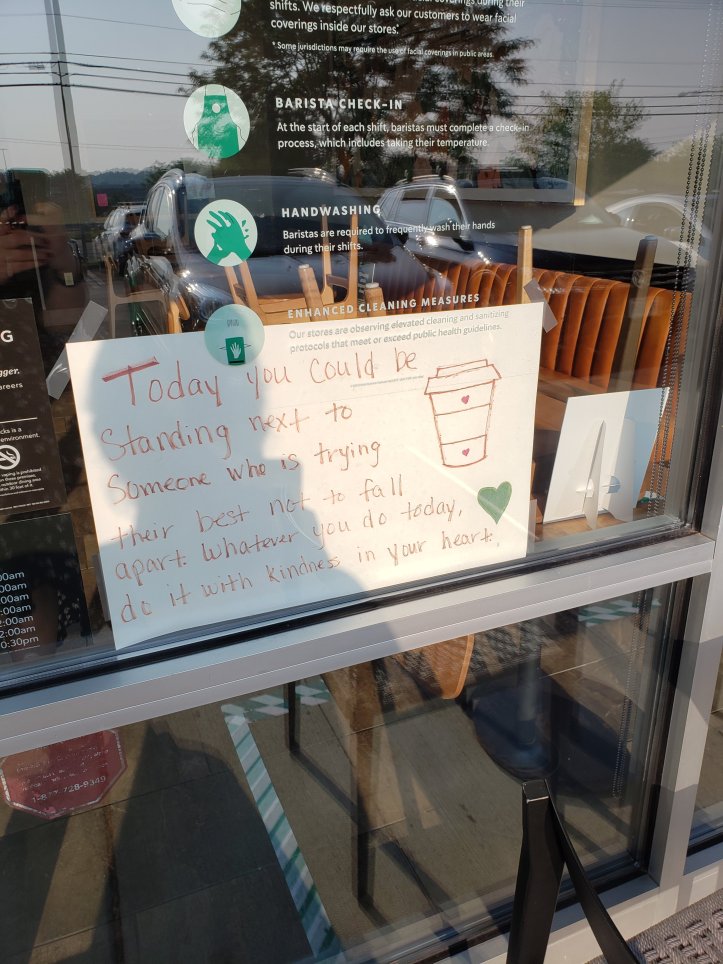 shifts. We respectfully ask our customers to wear facial
coverings inside our stores.
* Some jurisdictions may require the use of facial coverings in public areas.
BARISTA CHECK-IN
At the start of each shift, baristas must complete a check-in
process, which includes taking their temperature.
HANDWASHING
Baristas are required to frequently wash their hands
during their shifts.
ENHANCED CLEANING MEASURES
Our stores are observing elevated cleaning and sanitizing
protocols that meet or exceed public health guidelines.
Today you could be
Standing next to
Someone who is trying
their best not to fall
apart. Whatever you do today,
do it with kindness in your heart.
G
gger.
areers
cks is a
environment.
00am
00am
:00am
:00am
2:00am
2:00am
0:30pm
728-9349